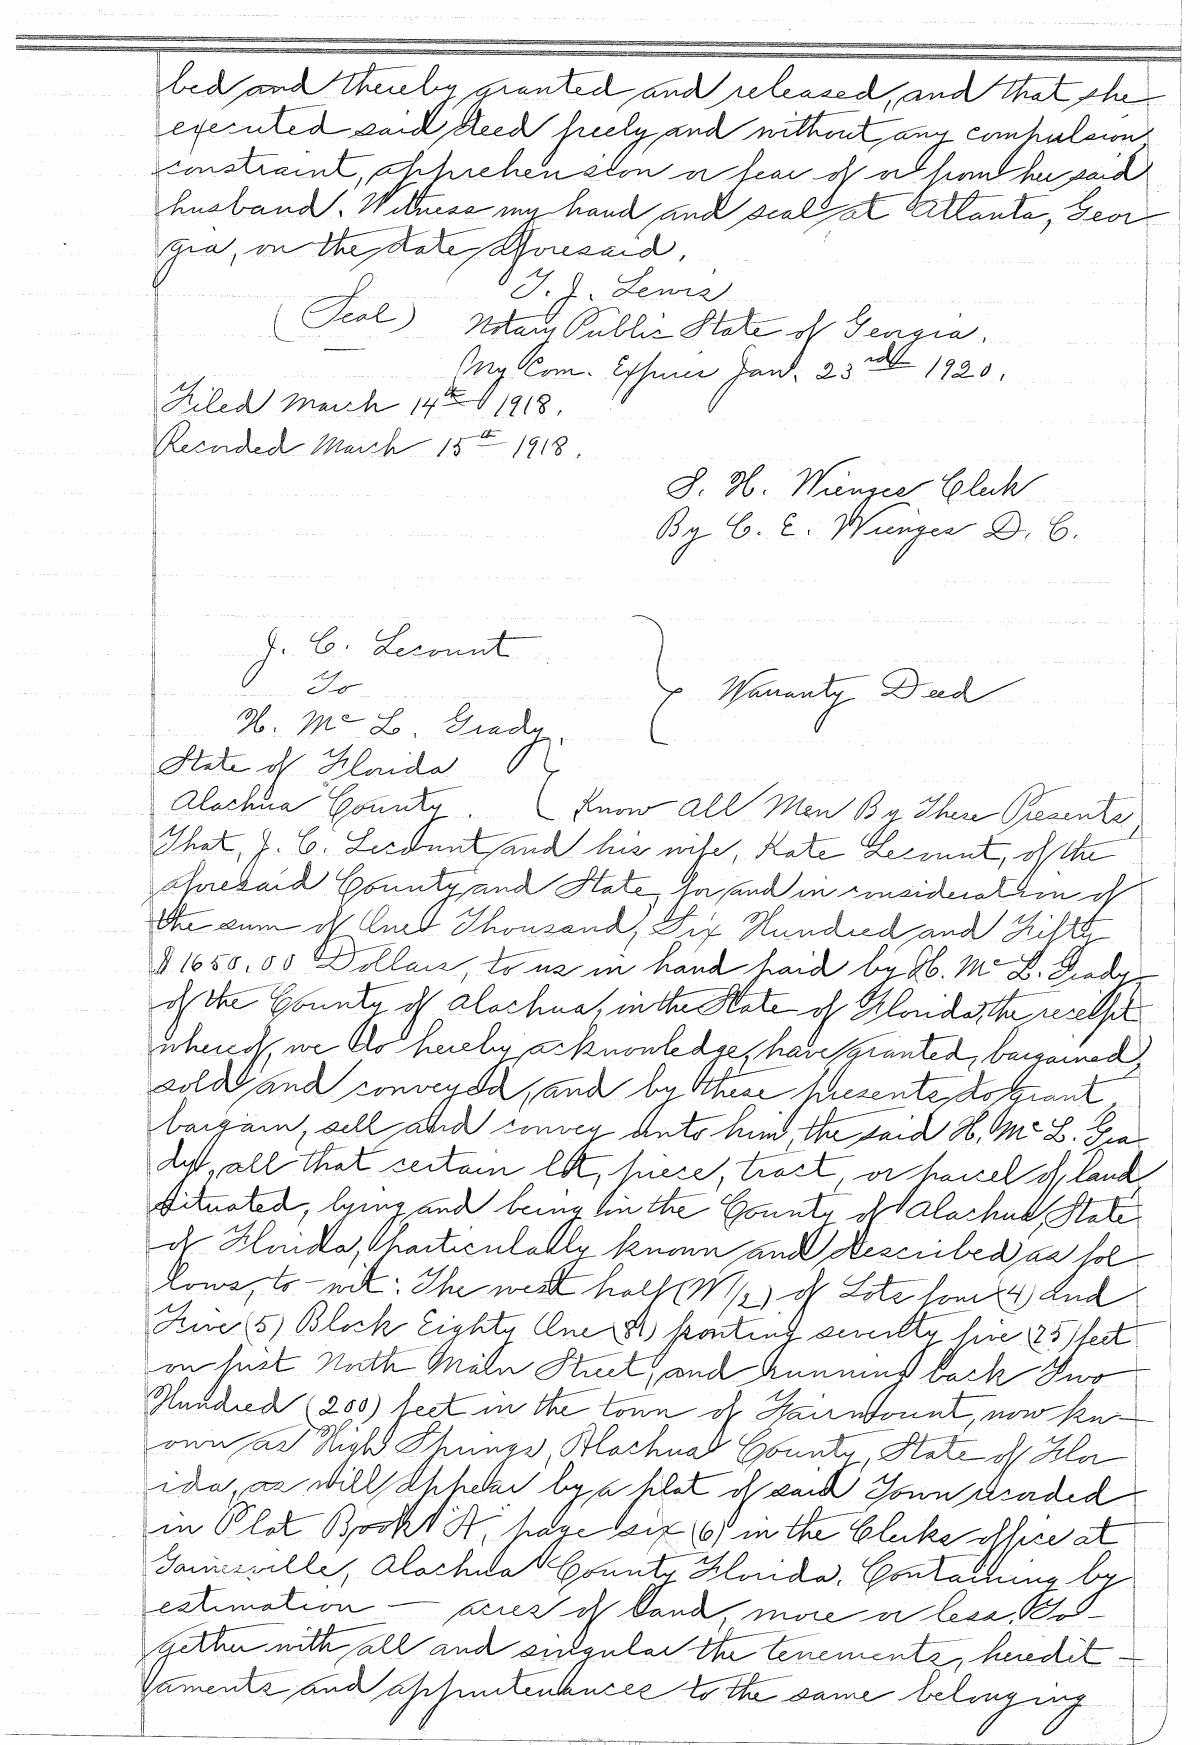 bed and thereby granted and released, and that she
executed said deed freely and without any compulsion,
constraint, apprehension or fear of or from her said
husband. Witness my hand and seal at Atlanta, Geor
gia, on the date aforesaid.
T. J. Lewis
(Seal) Notary Public State of Georgia.
My Com. Expires Jan. 23rd 1920.
Filed March 14th 1918.
Recorded March 15th 1918.
S. H. Wienges Clerk
By C. E. Wienges D. C.
J. C. Lecount
To
Warranty Deed
H. Mc L. Grady.
State of Florida
Alachua County. Know All Men By These Presents,
That, J. C. Lecount and his wife, Kate Lecount, of the
aforesaid County and State, for and in consideration of
the sum of One Thousand, Six Hundred and Fifty
$1650.00 Dollars, to us in hand paid by H. Mc L. Grady
of the County of Alachua, in the State of Florida, the receipt
whereof, we do hereby acknowledge, have granted, bargained,
sold and conveyed, and by these presents do grant,
bargain, sell and convey unto him, the said H. Mc L. Gra
dy, all that certain lot, piece, tract, or parcel of land,
situated, lying and being in the County of Alachua, State
of Florida, particularly known and described as fol
lows, to-wit: The west half (W/2) of Lots four (4) and
Five (5) Block Eighty One (81) fronting seventy five (75) feet
on first North Main Street, and running back Two
Hundred (200) feet in the town of Fairmount, now kn-
own as High Springs, Alachua County, State of Flor
ida, as will appear by a plat of said Town recorded
in Plat Book "A", page six (6) in the Clerks office at
Gainesville, Alachua County Florida. Containing by
estimation — acres of land, more or less. To-
gether with all and singular the tenements, heredit-
aments and appurtenances to the same belonging